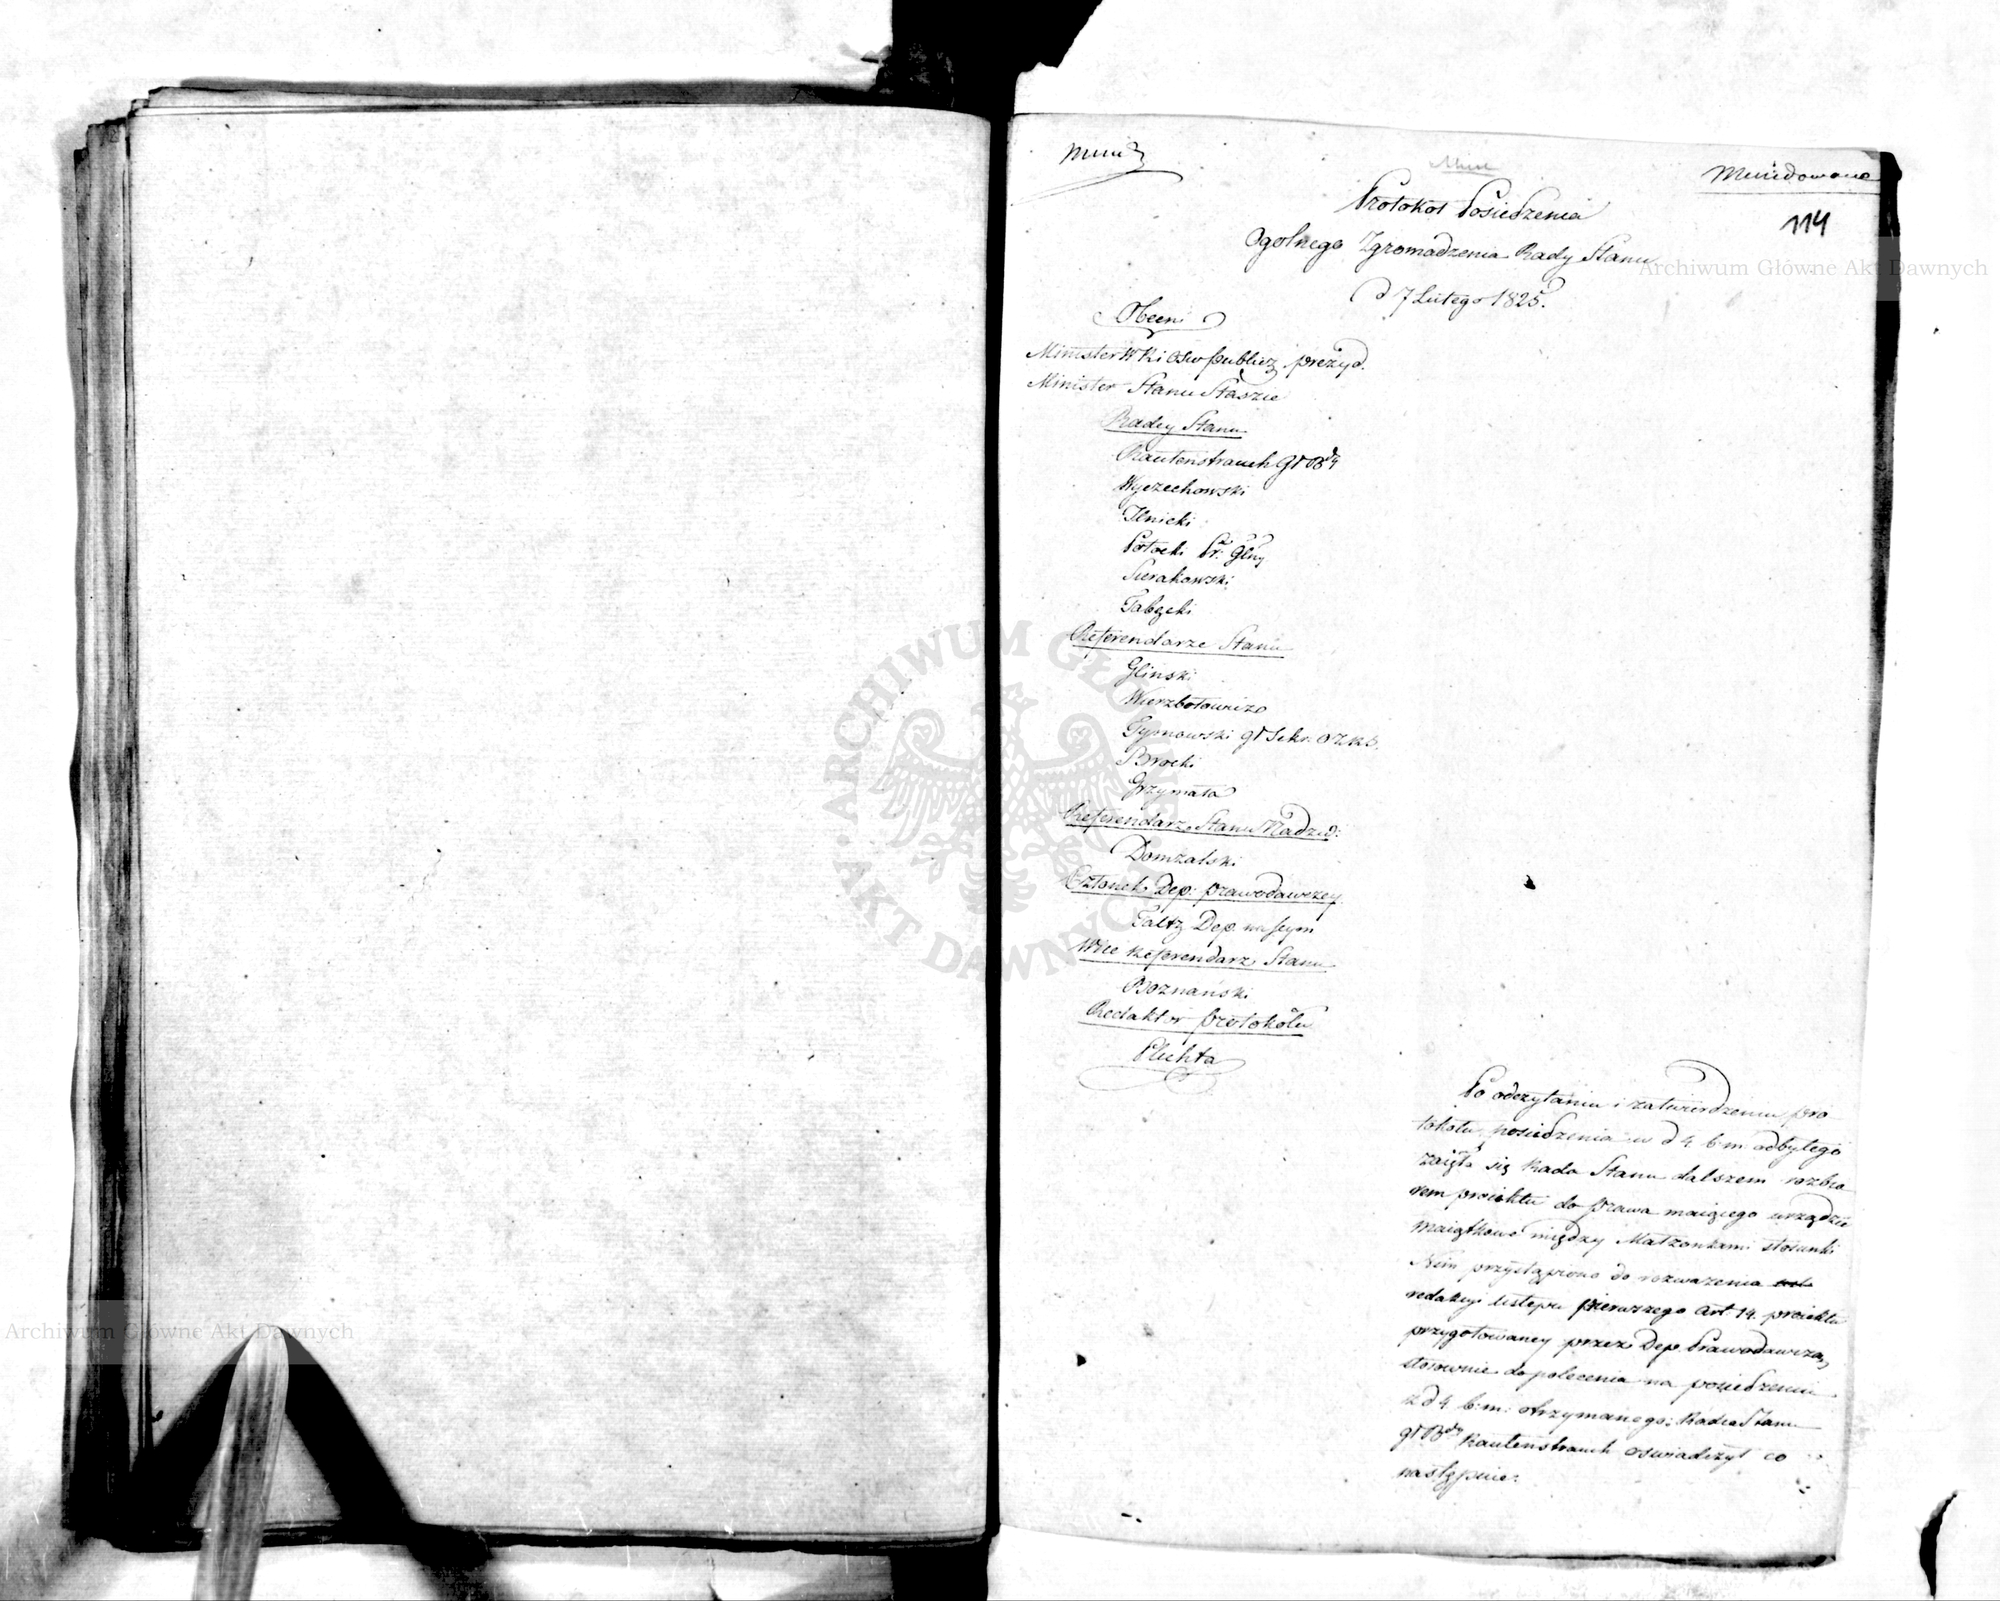 Mund
Mundowano
114
Protokół Posiedzenia
Ogolnego Zgromadzenia Rady Stanu
d 7 Lutego 1825.
Obecni
Minister W Ri Osw publicz prezyd.
Minister Stanu Staszic
Radcy Stanu
Rautenstrauch Gł Bdy
Wyczechowski
Ilnicki
Potocki Pr: Glny
Sierakowski
Tabęcki
Referendarze Stanu
Gliński
Wierzbołowicz
Tymowski gł Sekr.
Brocki
Grzymała
Referendarz Stanu Nadzw:
Domżalski
Członek Dep: prawodawczey
Faltz Dep. na seym
Wice Referendarz Stanu
Boznański
Redaktor protokółu
Plichta
Po odczytaniu i zatwierdzeniu pro
tokółu posiedzenia w d 4 b.m. odbytego
zaięła się Rada Stanu dalszem rozbio
rem proiektu do prawa maiącego urządzić
maiątkowe między Małżonkami stosunki
Nim przystąpiono do rozważenia
redakcyi ustępu pierwszego art. 14. proiektu
przygotowaney przez Dep. Prawodawczą,
stosownie do polecenia na posiedzeniu
z d 4 b.m: otrzymanego; Radca Stanu
gł Bdy Rautenstrauch oswiadczył co
następuie:
Archiwum Główne Akt Dawnych
Archiwum Główne Akt Dawnych
ARCHIWUM GŁÓWNE AKT DAWNYCH